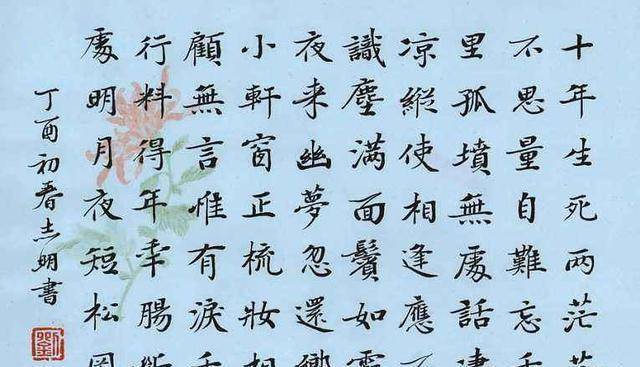 十年生死两茫茫
不思量自難忘千
里孤墳無處話凄
凉縱使相逢應不
識塵滿面鬢如霜
夜来幽夢忽還鄉
小軒窗正梳妝相
顧無言惟有淚千
行料得年秊腸斷
處明月夜短松岡
丁酉初春志明書
劉